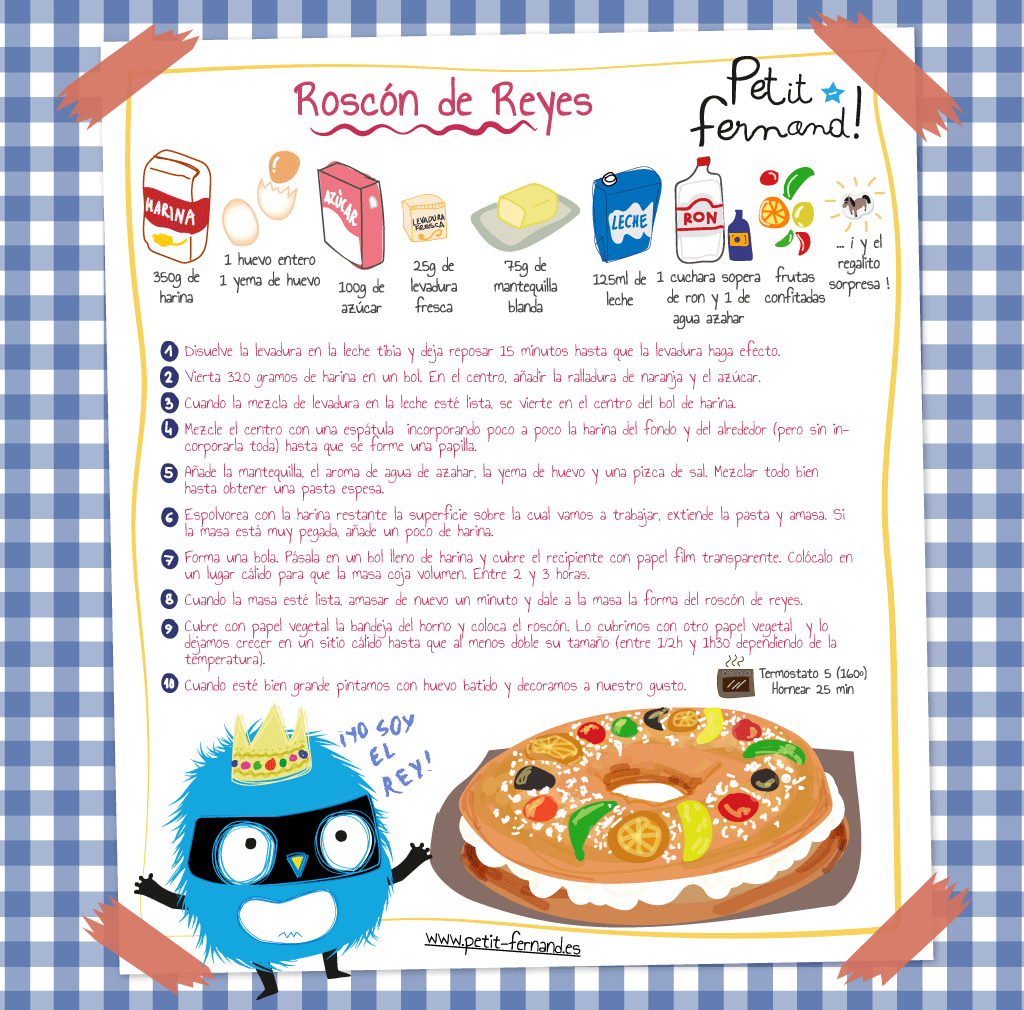 Roscón de Reyes
Petit
fernand!
HARINA
AZÚCAR
LEVADURA
FRESCA
LECHE
RON
350g de
harina
1 huevo entero
1 yema de huevo
100g de
azúcar
25g de
levadura
fresca
75g de
mantequilla
blanda
125ml de
leche
1 cuchara sopera
de ron y 1 de
agua azahar
frutas
confitadas
... ¡ y el
regalito
sorpresa !
1 Disuelve la levadura en la leche tibia y deja reposar 15 minutos hasta que la levadura haga efecto.
2 Vierta 320 gramos de harina en un bol. En el centro, añadir la ralladura de naranja y el azúcar.
3 Cuando la mezcla de levadura en la leche esté lista, se vierte en el centro del bol de harina.
4 Mezcle el centro con una espátula incorporando poco a poco la harina del fondo y del alrededor (pero sin in-
corporarla toda) hasta que se forme una papilla.
5 Añade la mantequilla, el aroma de agua de azahar, la yema de huevo y una pizca de sal. Mezclar todo bien
hasta obtener una pasta espesa.
6 Espolvorea con la harina restante la superficie sobre la cual vamos a trabajar, extiende la pasta y amasa. Si
la masa está muy pegada, añade un poco de harina.
7 Forma una bola. Pásala en un bol lleno de harina y cubre el recipiente con papel film transparente. Colócalo en
un lugar cálido para que la masa coja volumen. Entre 2 y 3 horas.
8 Cuando la masa esté lista, amasar de nuevo un minuto y dale a la masa la forma del roscón de reyes.
9 Cubre con papel vegetal la bandeja del horno y coloca el roscón. Lo cubrimos con otro papel vegetal y lo
dejamos crecer en un sitio cálido hasta que al menos doble su tamaño (entre 1/2h y 1h30 dependiendo de la
temperatura).
10 Cuando esté bien grande pintamos con huevo batido y decoramos a nuestro gusto.
Termostato 5 (160º)
Hornear 25 min
¡YO SOY
EL
REY!
www.petit-fernand.es